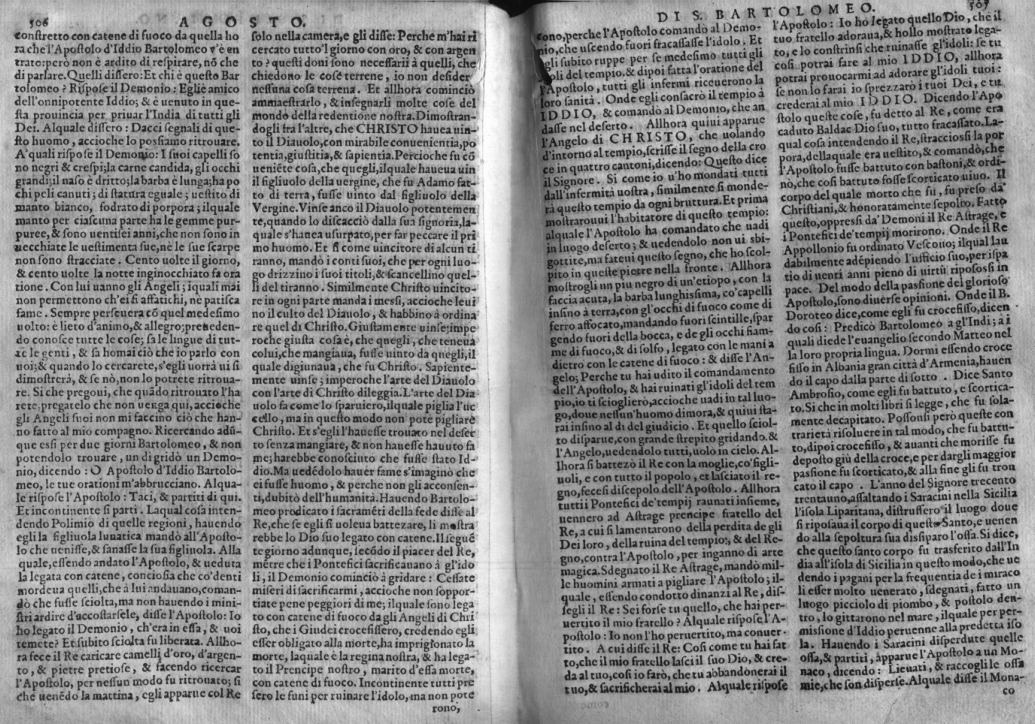 506 AGOSTO.
constretto con catene di fuoco da quella ho
ra che l'Apostolo d'Iddio Bartolomeo v'è en
trato: però non è ardito di respirare, nō che
di parlare. Quelli dissero: Et chi è questo Bar
tolomeo? Rispose il Demonio: Egli è amico
dell'onnipotente Iddio; & è uenuto in que-
sta prouincia per priuar l'India di tutti gli
Dei. Alquale dissero: Dacci segnali di que-
sto huomo, accioche lo possiamo ritrouare.
A' quali rispose il Demonio: I suoi capelli so
no negri & crespi; la carne candida, gli occhi
grandi; il naso è dritto; la barba è lunga; ha po
chi peli canuti; di statura eguale; uestito di
manto bianco, fodrato di porpora; ilquale
manto per ciascuna parte ha le gemme pur-
puree, & sono uentisei anni, che non sono in
uecchiate le uestimenta sue, nè le sue scarpe
non sono stracciate. Cento uolte il giorno,
& cento uolte la notte inginocchiato fa ora
tione. Con lui uanno gli Angeli; iquali mai
non permettono ch'ei si affatichi, nè patisca
fame. Sempre perseuera cō quel medesimo
uolto: è lieto d'animo, & allegro; preuedendo
conosce tutte le cose; sa le lingue di tut-
te le genti, & sa homai ciò che io parlo con
uoi; & quando lo cercarete, s'egli uorrà ui si
dimostrerà, & se nò, non lo potrete ritroua-
re. Si che pregoui, che quādo ritrouato l'ha
rete, pregatelo che non uenga qui, accioche
gli Angeli suoi non mi faccino ciò che han-
no fatto al mio compagno. Ricercando adū-
que essi per due giorni Bartolomeo, & non
potendolo trouare, un dì gridò un Demo-
nio, dicendo: O Apostolo d'Iddio Bartolo-
meo, le tue orationi m'abbrucciano. Alqua-
le rispose l'Apostolo: Taci, & partiti di qui.
Et incontinente si parti. Laqual cosa inten-
dendo Polimio di quelle regioni, hauendo
egli la figliuola lunatica mandò all'Aposto-
lo che uenisse, & sanasse la sua figliuola. Alla
quale, essendo andato l'Apostolo, & ueduta
la legata con catene, conciosia che co'denti
mordeua quelli, che à lui andauano, coman-
dò che fusse sciolta, ma non hauendo i mini-
stri ardire d'accostarsele, disse l'Apostolo: Io
ho legato il Demonio, ch'era in essa, & uoi
temete? Et subito sciolta fu liberata. Allho-
ra fece il Re caricare camelli d'oro, d'argen-
to, & pietre pretiose, & facendo ricercar
l'Apostolo, per nessun modo fu ritrouato; si
che uenēdo la mattina, egli apparue col Re
solo nella camera, e gli disse: Perche m'hai ri
cercato tutto'l giorno con oro, & con argen
to? questi doni sono necessarij à quelli, che
chiedono le cose terrene, io non desider
nessuna cosa terrena. Et allhora cominciò
ammaestrarlo, & insegnarli molte cose del
mondo della redentione nostra. Dimostran-
dogli fra l'altre, che CHRISTO hauea uin-
to il Diauolo, con mirabile conuenientia, po
tentia, giustitia, & sapientia. Percioche fu cō
ueniēte cosa, che quegli, ilquale haueua uin
il figliuolo della uergine, che fu Adamo fat-
to di terra, fusse uinto dal figliuolo della
Vergine. Vinse anco il Diauolo potentemen
te, quando lo discacciò dalla sua signoria, la-
quale s'hauea usurpato, per far peccare il pri
mo huomo. Et si come uincitore di alcun ti
ranno, mandò i conti suoi, che per ogni luo-
go drizzino i suoi titoli, & scancellino quel-
li del tiranno. Similmente Christo uincito-
re in ogni parte manda i messi, accioche leui
no il culto del Diauolo, & habbino à ordina
re quel di Christo. Giustamente uinse; impe
roche giusta cosa è, che quegli, che teneua
colui, che mangiaua, fusse uinto da quegli, il
quale digiunaua, che fu Christo. Sapiente-
mente uinse; imperoche l'arte del Diauolo
con l'arte di Christo dileggia. L'arte del Diau
uolo fa come lo sparuiero, ilquale piglia l'uc
cello, ma in questo modo non pote pigliare
Christo. Et s'egli l'hauesse trouato nel deser
to senza mangiare, & non hauesse hauuto fa
me; harebbe conosciuto che fusse stato Id-
dio. Ma uedēdolo hauer fame s'imaginò che
ei fusse huomo, & perche non gli acconsen-
ti, dubitò dell'humanità. Hauendo Bartolo-
meo predicato i sacramēti della fede disse al
Re, che se egli si uoleua battezare, li mostra
rebbe lo Dio suo legato con catene. Il seguē
te giorno adunque, secōdo il piacer del Re,
mētre che i Pontefici sacrificauano à gl'ido
li, il Demonio cominciò à gridare: Cessate
miseri di sacrificarmi, accioche non soppor-
tiate pene peggiori di me; ilquale sono lega
to con catene di fuoco da gli Angeli di Chri
sto, che i Giudei crocefissero, credendo egli
esser obligato alla morte, ha imprigfonato la
morte, laquale è la regina nostra, & ha lega-
to il Prencipe nostro, marito d'essa morte,
con catene di fuoco. Incontinente tutti pre
sero le funi per ruinare l'idolo, ma non pote
rono,
DI S. BARTOLOMEO. 507
rono, perche l'Apostolo comandò al Demo-
nio, che uscendo fuori fracassasse l'idolo. Et
egli subito ruppe per se medesimo tutti gli
idoli del tempio, & dipoi fatta l'oratione del
l'Apostolo, tutti gli infermi riceuerono la
loro sanità. Onde egli consacrò il tempio à
IDDIO, & comandò al Demonio, che an
dasse nel deserto. Allhora quiui apparue
l'Angelo di CHRISTO, che uolando
d'intorno al tempio, scrisse il segno della cro
ce in quattro cantoni, dicendo: Questo dice
il Signore. Si come io u'ho mondati tutti
dall'infermità uostra, similmente si monde-
rà questo tempio da ogni bruttura. Et prima
mostrarouui l'habitatore di questo tempio:
alquale l'Apostolo ha comandato che uadi
in luogo deserto; & uedendolo non ui sbi-
gottite, ma fateui questo segno, che ho scol-
pito in queste pietre nella fronte. Allhora
mostrogli un piu negro di un'etiopo, con la
faccia acuta, la barba lunghissima, co' capelli
insino à terra, con gl'occhi di fuoco come di
ferro affocato, mandando fuori scintille, spar
gendo fuori della bocca, e de gli occhi fiam-
me di fuoco, & di solfo, legato con le mani a
dietro con le catene di fuoco: & disse l'An-
gelo: Perche tu hai udito il comandamento
dell'Apostolo, & hai ruinati gl'idoli del tem
pio, io ti scioglierò, accioche uadi in tal luo-
go, doue nessun'huomo dimora, & quiui sta-
rai insino al dì del giudicio. Et quello sciol-
to disparue, con grande strepito gridando. &
l'Angelo, uedendolo tutti, uolò in cielo. Al-
lhora si battezò il Re con la moglie, co'figli-
uoli, e con tutto il popolo, et lasciato il re-
gno, fecesi discepolo dell'Apostolo. Allhora
tutti i Pontefici de' tempij raunati insieme,
uennero ad Astrage prencipe fratello del
Re, a cui si lamentarono della perdita de gli
Dei loro, della ruina del tempio, & del Re-
gno, contra l'Apostolo, per inganno di arte
magica. Sdegnato il Re Astrage, mandò mil-
le huomini armati a pigliare l'Apostolo; il-
quale, essendo condotto dinanzi al Re, dis-
segli il Re: Sei forse tu quello, che hai per-
uertito il mio fratello? Alquale rispose l'A-
postolo: Io non l'ho peruertito, ma conuer-
tito. A cui disse il Re: Cosi come tu hai fat
to, che il mio fratello lasci il suo Dio, & cre-
da al tuo, cosi io farò, che tu abbandonerai il
tuo, & sacrificherai al mio. Alquale rispose
l'Apostolo: Io ho legato quello Dio, che il
tuo fratello adoraua, & hollo mostrato lega-
to, e lo constrinsi che ruinasse gl'idoli: se tu
cosi potrai fare al mio IDDIO, allhora
potrai prouocarmi ad adorare gl'idoli tuoi:
se non lo farai io sprezzarò i tuoi Dei, e tu
crederai al mio IDDIO. Dicendo l'Apo
stolo queste cose, fu detto al Re, come era
caduto Baldac Dio suo, tutto fracassato. La-
qual cosa intendendo il Re, stracciosi la por
pora, della quale era uestito, & comandò, che
l'Apostolo fusse battuto con bastoni, & ordi-
nò, che cosi battuto fosse scorticato uiuo. Il
corpo del quale morto che fu, fu preso da'
Christiani, & honoratamente sepolto. Fatto
questo, oppressi da' Demoni il Re Astrage, e
i Pontefici de' tempij morirono. Onde il Re
Appollonio fu ordinato Vescouo; ilqual lau
dabilmente adēpiendo l'ufficio suo, per ispa
tio di uenti anni pieno di uirtù riposossi in
pace. Del modo della passione del glorioso
Apostolo, sono diuerse opinioni. Onde il B.
Doroteo dice, come egli fu crocefisso, dicen
do cosi: Predicò Bartolomeo a gl'Indi; a i
quali diede l'euangelio secondo Matteo nel
la loro propria lingua. Dormi essendo croce
fisso in Albania gran città d'Armenia, hauen
do il capo dalla parte di sotto. Dice Santo
Ambrosio, come egli fu battuto, e scortica-
to. Si che in molti libri si legge, che fu sola-
mente decapitato. Possonsi però queste con
trarietà risoluere in tal modo, che fu battu-
to, dipoi crocefisso, & auanti che morisse fu
deposto giù della croce, e per dargli maggior
passione fu scorticato, & alla fine gli fu tron
cato il capo. L'anno del Signore trecento
trentauno, assaltando i Saracini nella Sicilia
l'isola Liparitana, distrussero il luogo doue
si riposaua il corpo di questo Santo, e uenen
do alla sepoltura sua dissiparo l'ossa. Si dice,
che questo santo corpo fu trasferito dall'In
dia all'isola di Sicilia in questo modo, che ue
dendo i pagani per la frequentia de i miraco
li esser molto uenerato, sdegnati, fatto un
luogo picciolo di piombo, & postolo den-
tro, lo gittarono nel mare, ilquale per per-
missione d'Iddio peruenne alla predetta iso
la. Hauendo i Saracini disperdute quelle
ossa, & partiti, apparue l'Apostolo a un Mo-
naco, dicendo: Lieuati, & raccogli le ossa
mie, che son disperse. Alquale disse il Mona-
co